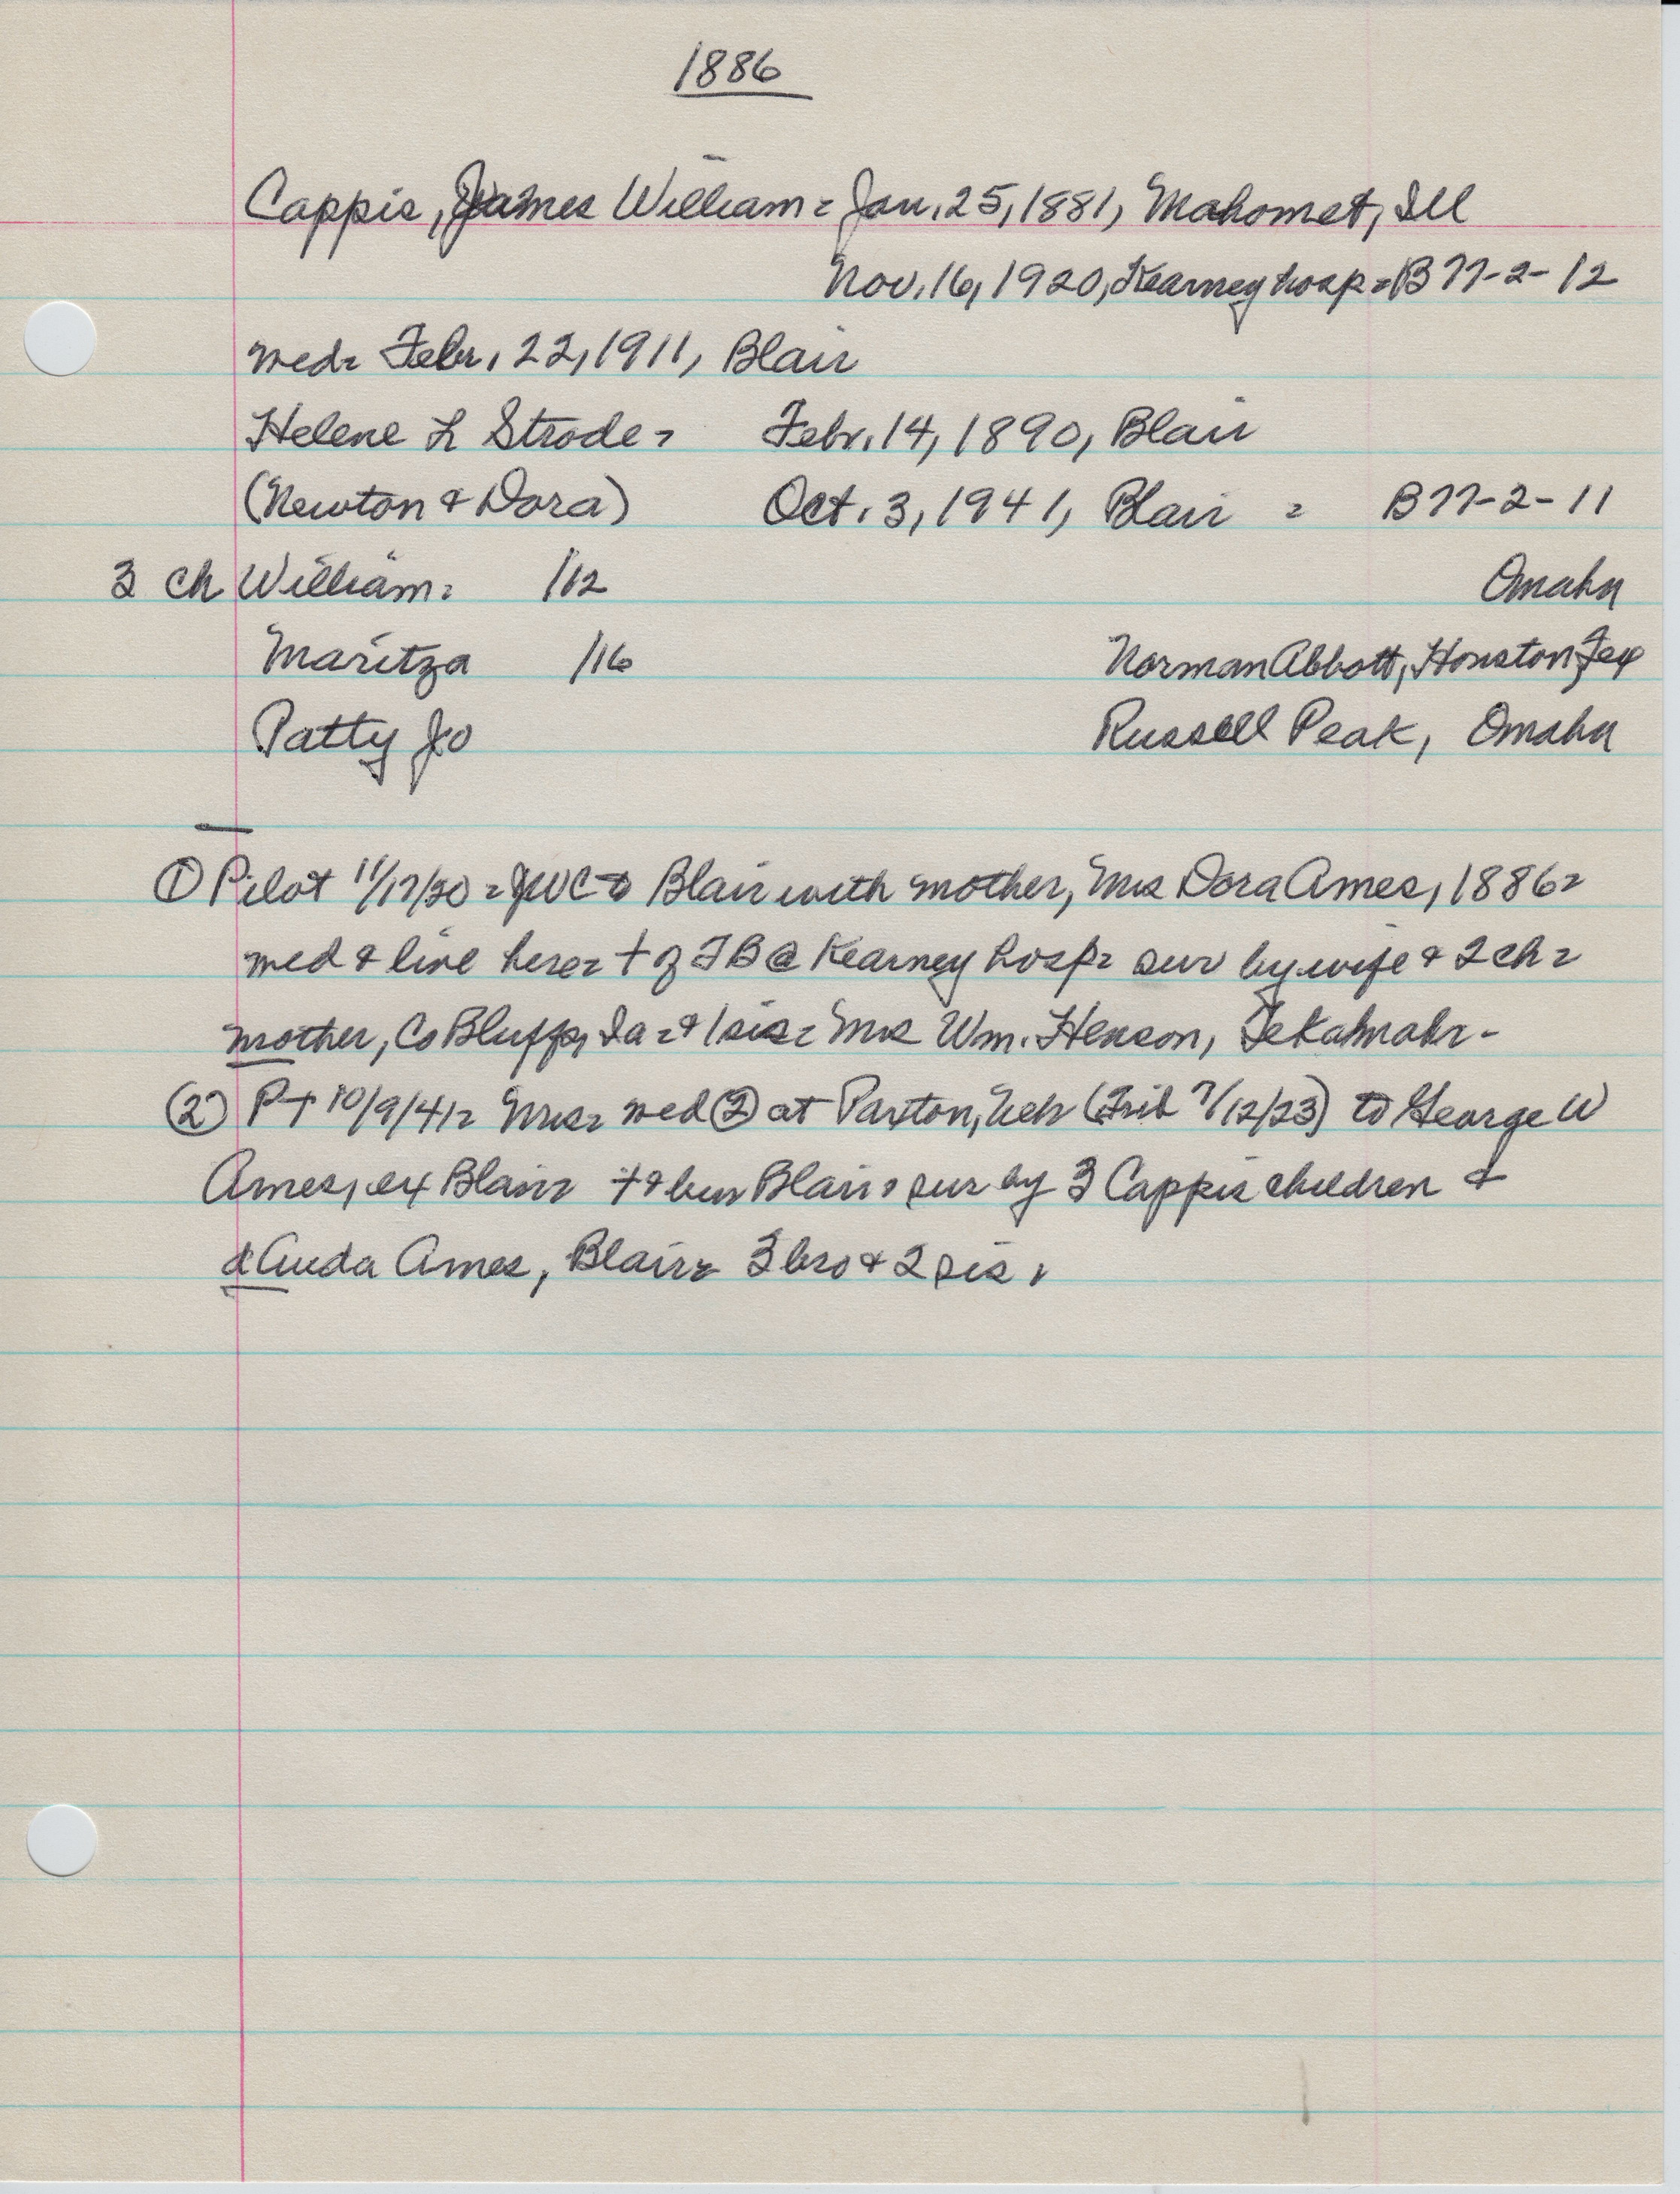 1886
Cappis, James William = Jan. 25, 1881, Mahomet, Ill
Nov. 16, 1920, Kearney hosp = B 77-2-12
med = Febr. 22, 1911, Blair
Helene L Strode = Febr. 14, 1890, Blair
(Newton & Dora) Oct. 3, 1941, Blair = B 77-2-11
3 ch William = /12 Omaha
Maritza /16 Norman Abbott, Houston Tex
Patty Jo Russell Peak, Omaha
① Pilot 11/17/20 = JWC to Blair with mother, Mrs Dora Ames, 1886 =
med & live here = † of TB @ Kearney hosp = sur by wife & 2 ch =
mother, Co Bluffs, Ia = & 1 sis = Mrs Wm. Henson, Tekahmah -
(2) PT 10/9/41 = Mrs = med ② at Paxton, Neb (Trib 7/12/23) to George W
Ames, ex Blair = † & bur Blair = sur by 3 Cappis children &
d Auda Ames, Blair = 3 bro & 2 sis,